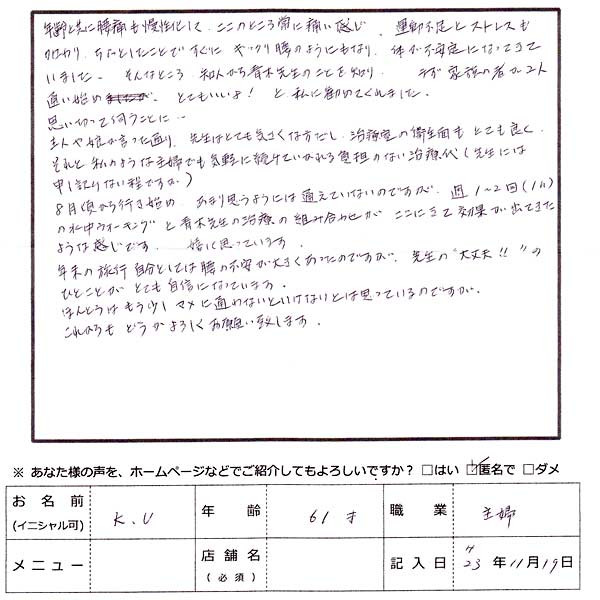 年齢と共に腰痛も慢性化して、ここのところ常に痛い感じ、運動不足とストレスも
加わり、ちょっとしたことですぐに ギックリ腰のようにもなり、体が不安定になってきて
いました。そんなところ、知人から青木先生のことを知り、まず家族の者が2人
通い始め とてもいいよ! と私に勧めてくれました。
思い切って伺うことに…
主人や娘が言った通り、先生はとても気さくな方だし、治療室の衛生面もとても良く、
それと私のような主婦でも気軽に続けていかれる負担のない治療代(先生には
申し訳ない程ですが)
8月頃から行き始め、あまり思うようには通えていないのですが、週1~2回(1h)
の水中ウォーキングと青木先生の治療の組み合わせが ここにきて効果が出てきた
ような感じです。 嬉しく思っています。
年末の旅行 自分としては腰の不安が大きくあったのですが、先生の"大丈夫!!"の
ひとことが とても自信になっています。
ほんとうは もう少し マメに通わないといけないとは思っているのですが、
これからも どうかよろしくお願い致します。
※ あなた様の声を、ホームページなどでご紹介してもよろしいですか? □はい ☑匿名で □ダメ
お名前 (イニシャル可) K.U 年齢 61才 職業 主婦
メニュー 店舗名 (必須) 記入日 H23年11月19日